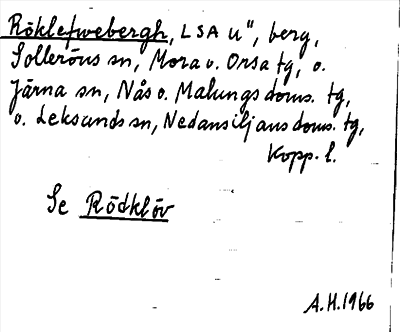 Röklefwebergh, LSA U", berg,
Solleröns sn, Mora o. Orsa tg, o.
Järna sn, Nås o. Malungs doms. tg,
o. Leksands sn, Nedansiljans doms. tg,
Kopp. l.
Se Rödklöv
A.H. 1966